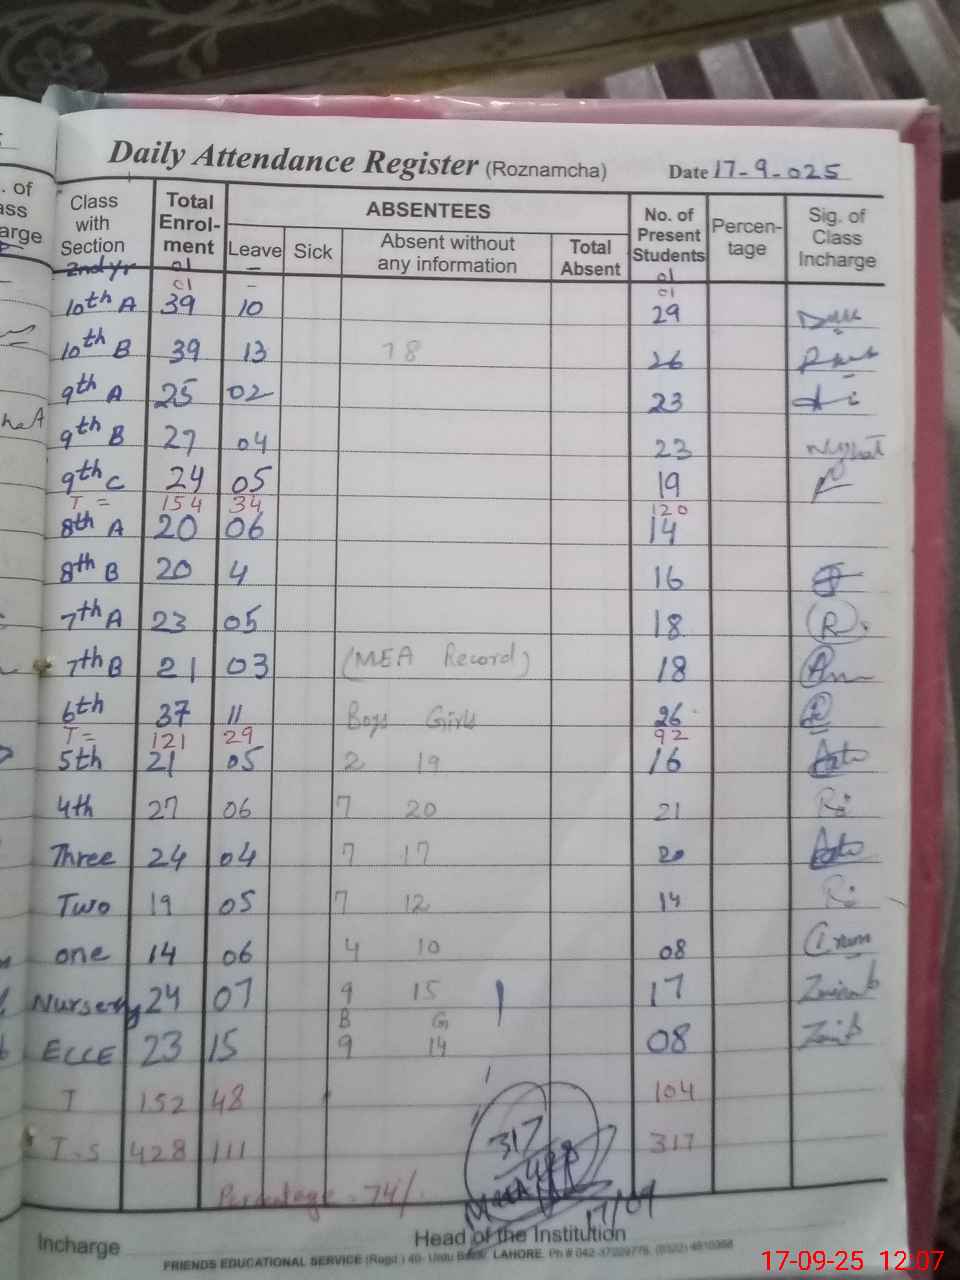 Daily Attendance Register (Roznamcha) Date 17-9-025
Class with Section Total Enrol-ment ABSENTEES No. of Present Students Percen-tage Sig. of Class Incharge
Leave Sick Absent without any information Total Absent
2nd yr 01 – 01
01 – 01
10th A 39 10 29
10th B 39 13 78 26
9th A 25 02 23
9th B 27 04 23 Nighat
9th C 24 05 19
T = 154 34 120
8th A 20 06 14
8th B 20 4 16
7th A 23 05 18 R.
7th B 21 03 (MEA Record) 18
6th 37 11 Boys Girls 26
T = 121 29 92
5th 21 05 2 19 16
4th 27 06 7 20 21
Three 24 04 7 17 20
Two 19 05 7 12 14
one 14 06 4 10 08 Irum
Nursery 24 07 9 15 17 Zainab
B G
ECCE 23 15 9 14 08
T 152 48 104
T.S 428 111 317
317
428
Percentage = 74%
MEA
17/09
Incharge Head of the Institution
FRIENDS EDUCATIONAL SERVICE (Regd.) 40- Urdu Bazar LAHORE. Ph # 042-
17-09-25 12:07